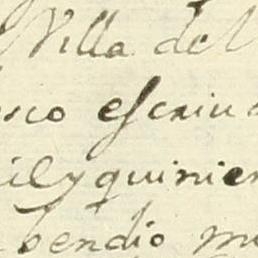 Villa del
sco escriu
mil y quinien
bendio mu